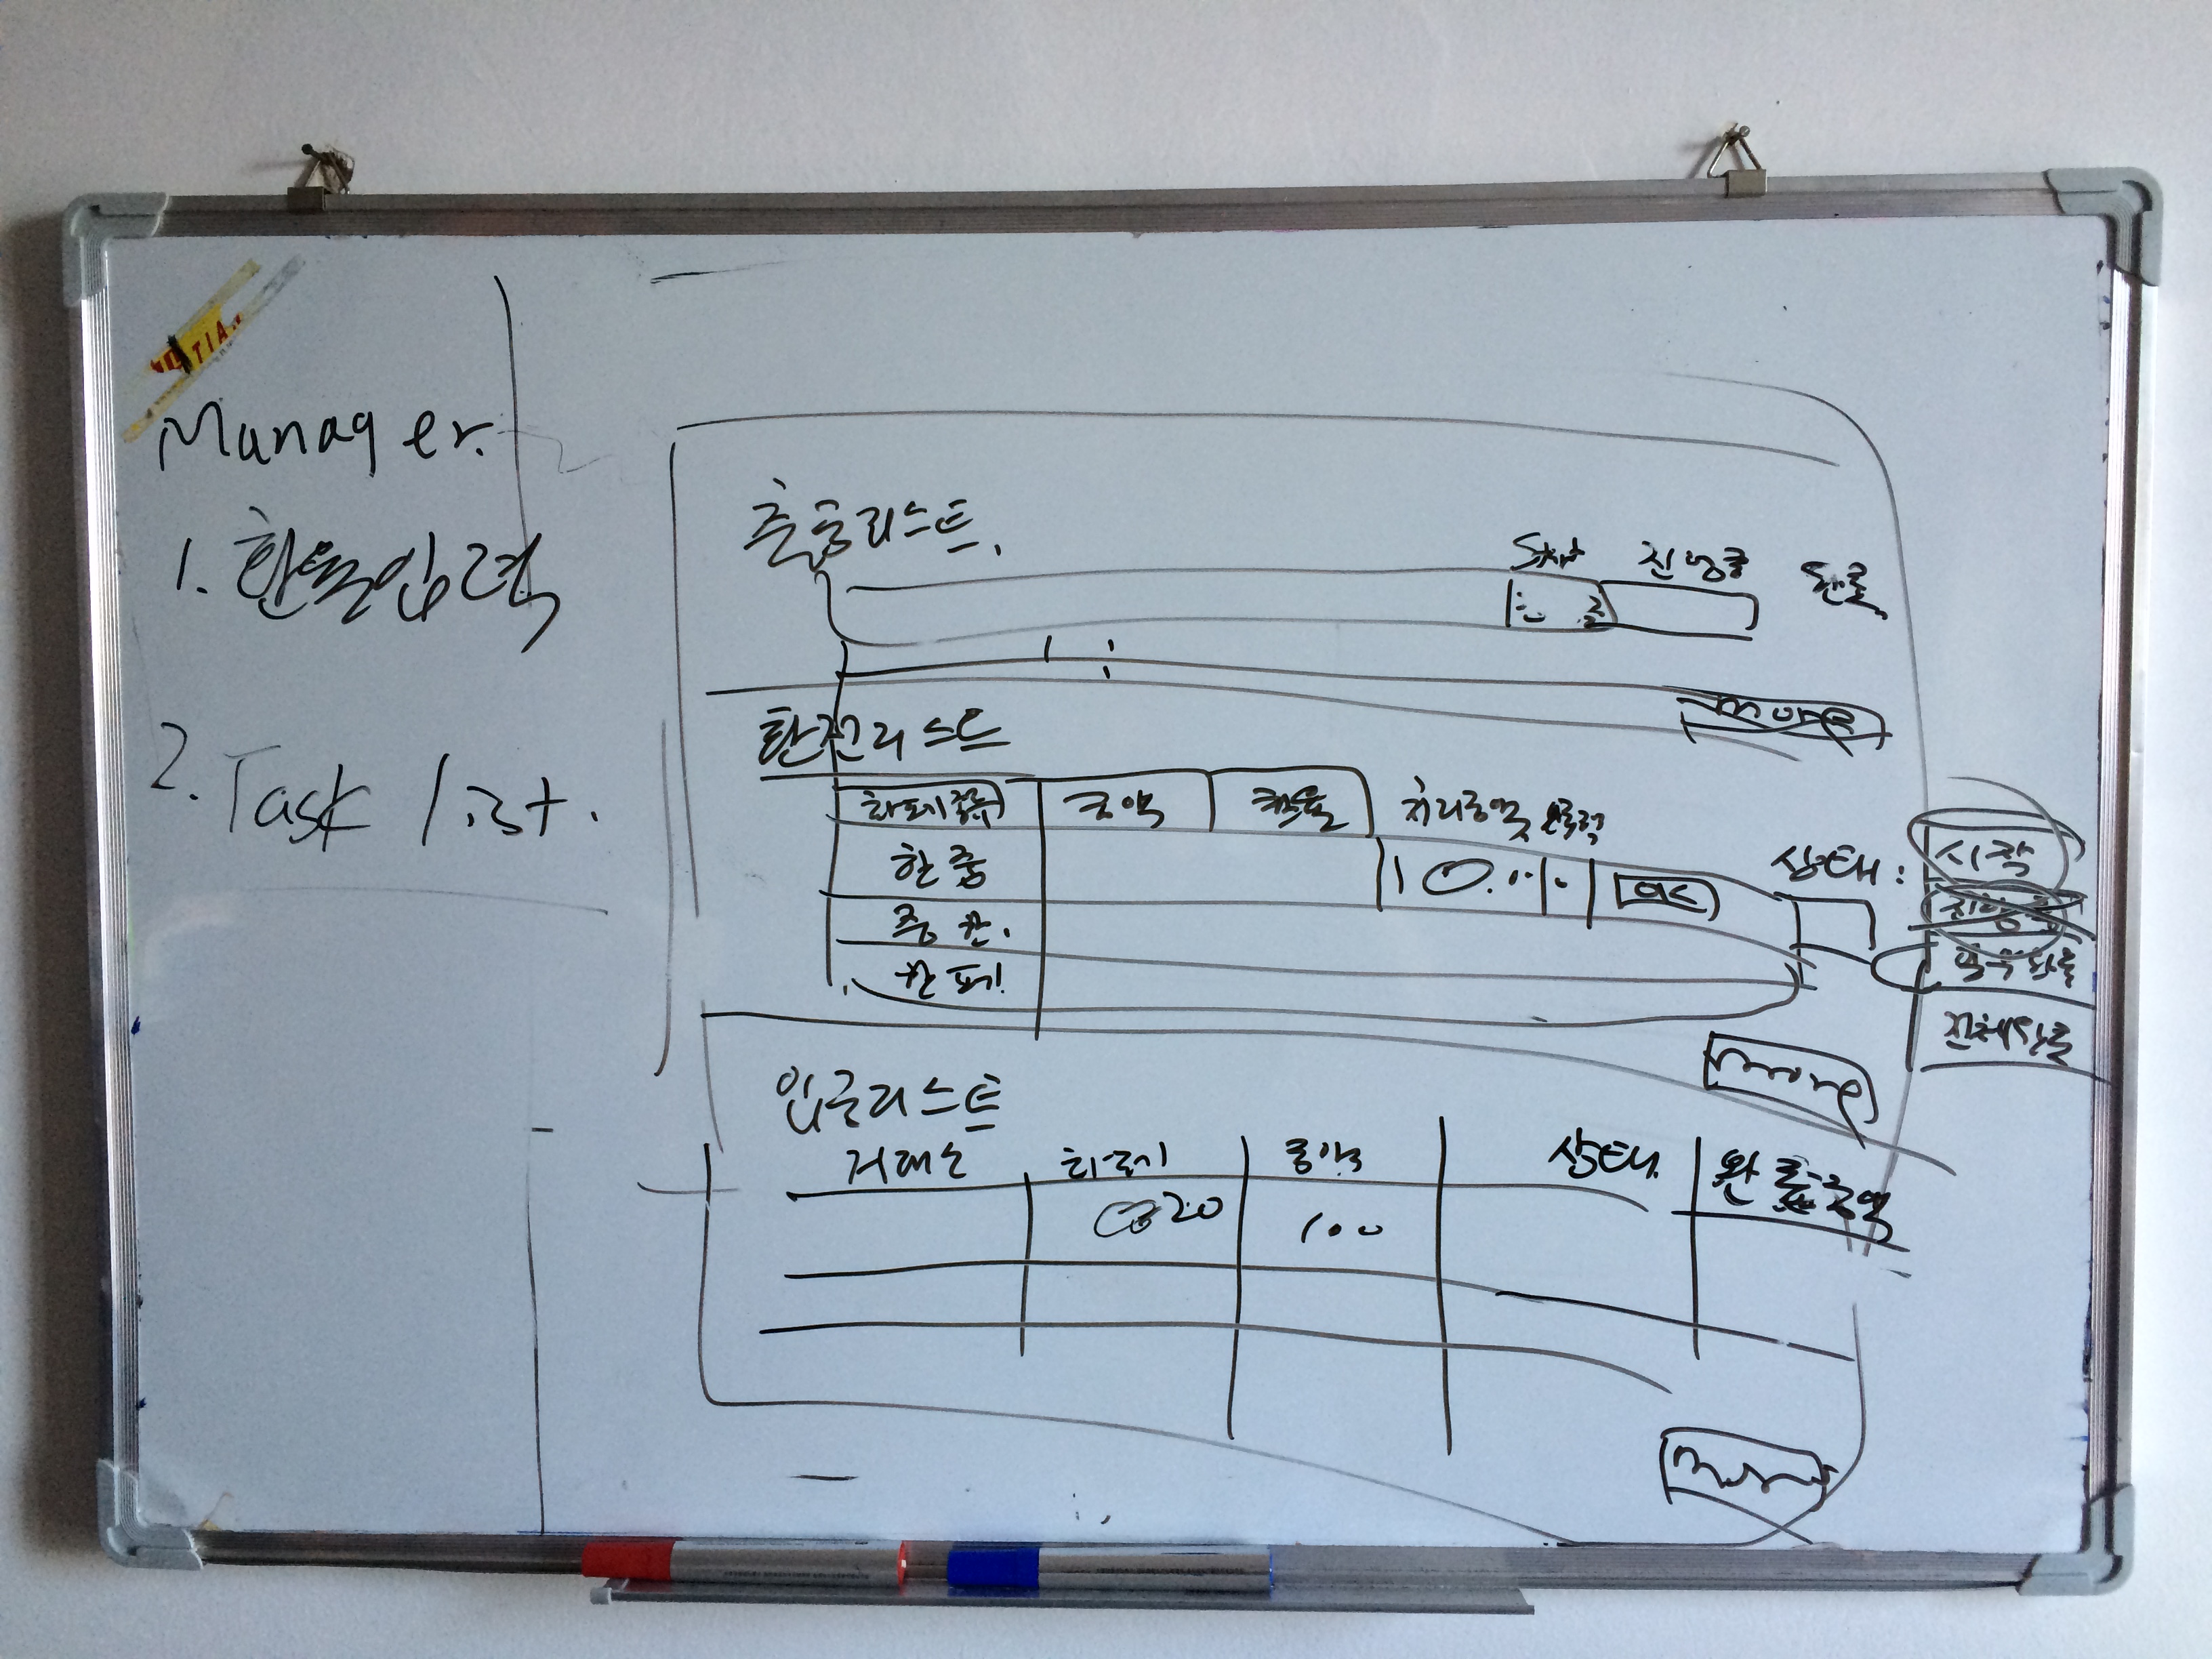 Manager.
1. 환율입력
2. Task list.
출금리스트.
Start 진행중 완료
more
환전리스트
화폐종류 금액 환율 처리금액 입력
한중
OK
중한.
한페
상태:
시작
진행중
일부완료
전체완료
more
입금리스트
거래소 화폐 금액 상태 완료금액
20 100
more